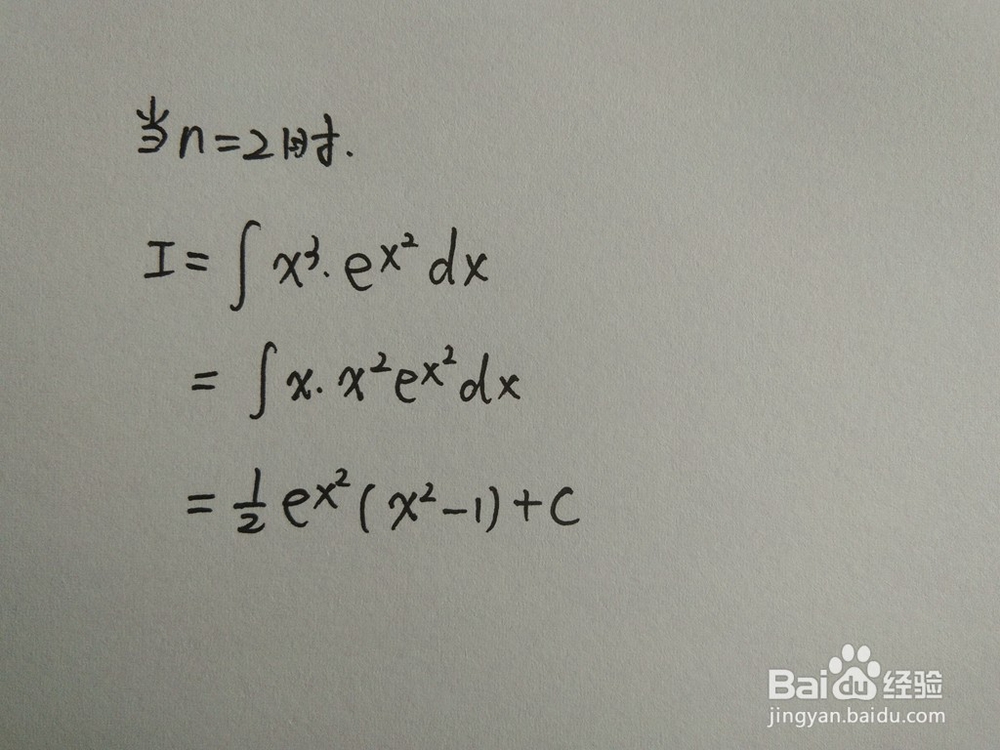 当n=2时.
I=∫x³·e^{x²}dx
=∫x·x²e^{x²}dx
=½e^{x²}(x²-1)+C
Baidu经验
jingyan.baidu.com